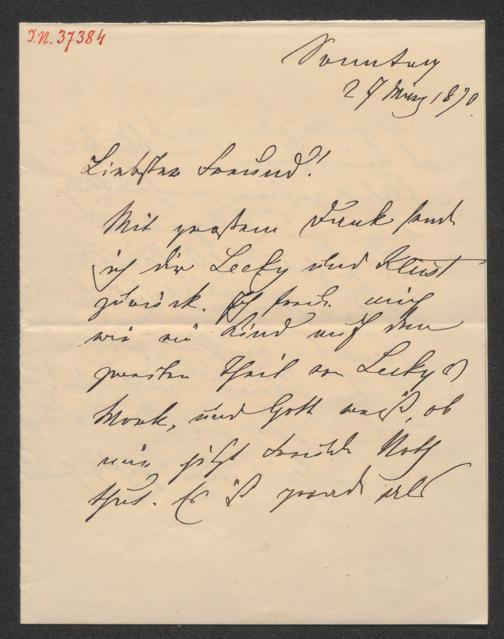 I.N. 37384
Sonntag
27 März 1870.
Liebster Freund!
Mit großem Dank sende
ich dir Lecky und Kleist
zurück. Ich freue mich
wie ein Kind auf den
zweiten Theil von Lecky's
Werk, und Gott weiß, ob
mir jetzt Freude Noth
thut. Es ist gerade als